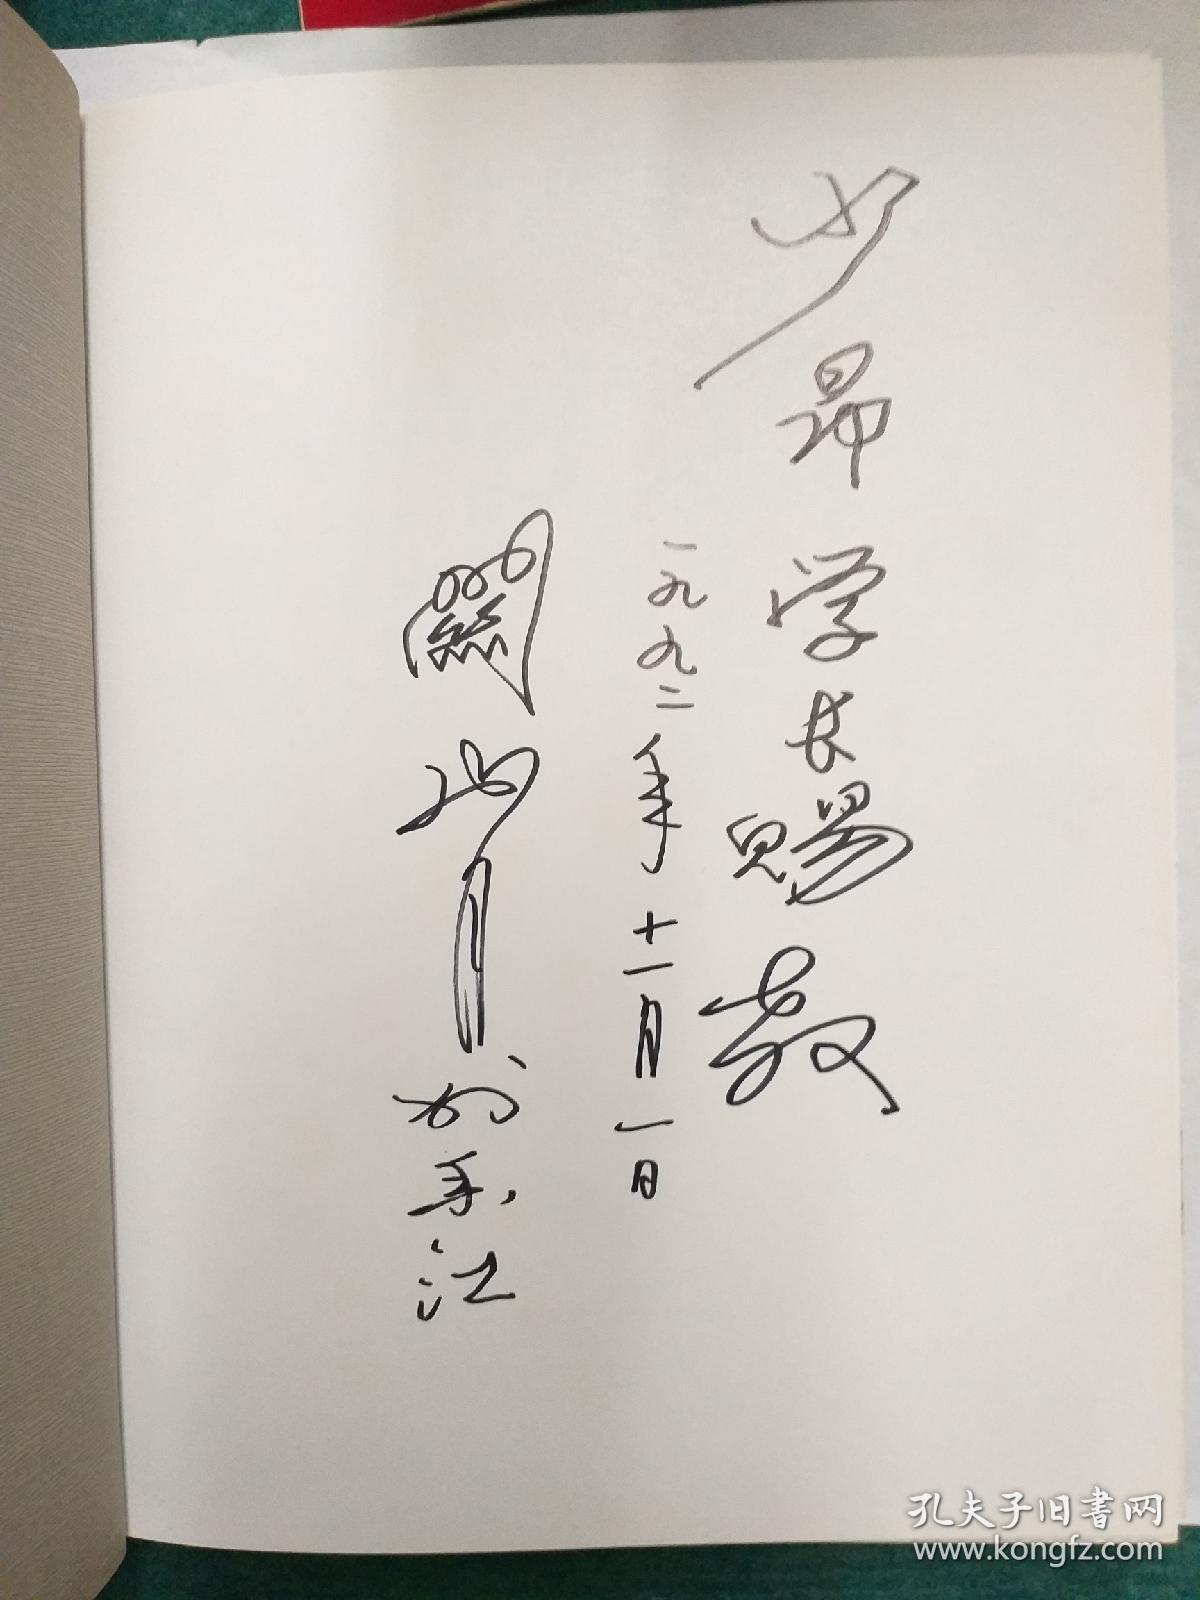 少昂学长赐教
一九九二年十一月一日
關山月於珠江
孔夫子旧書网
www.kongfz.com